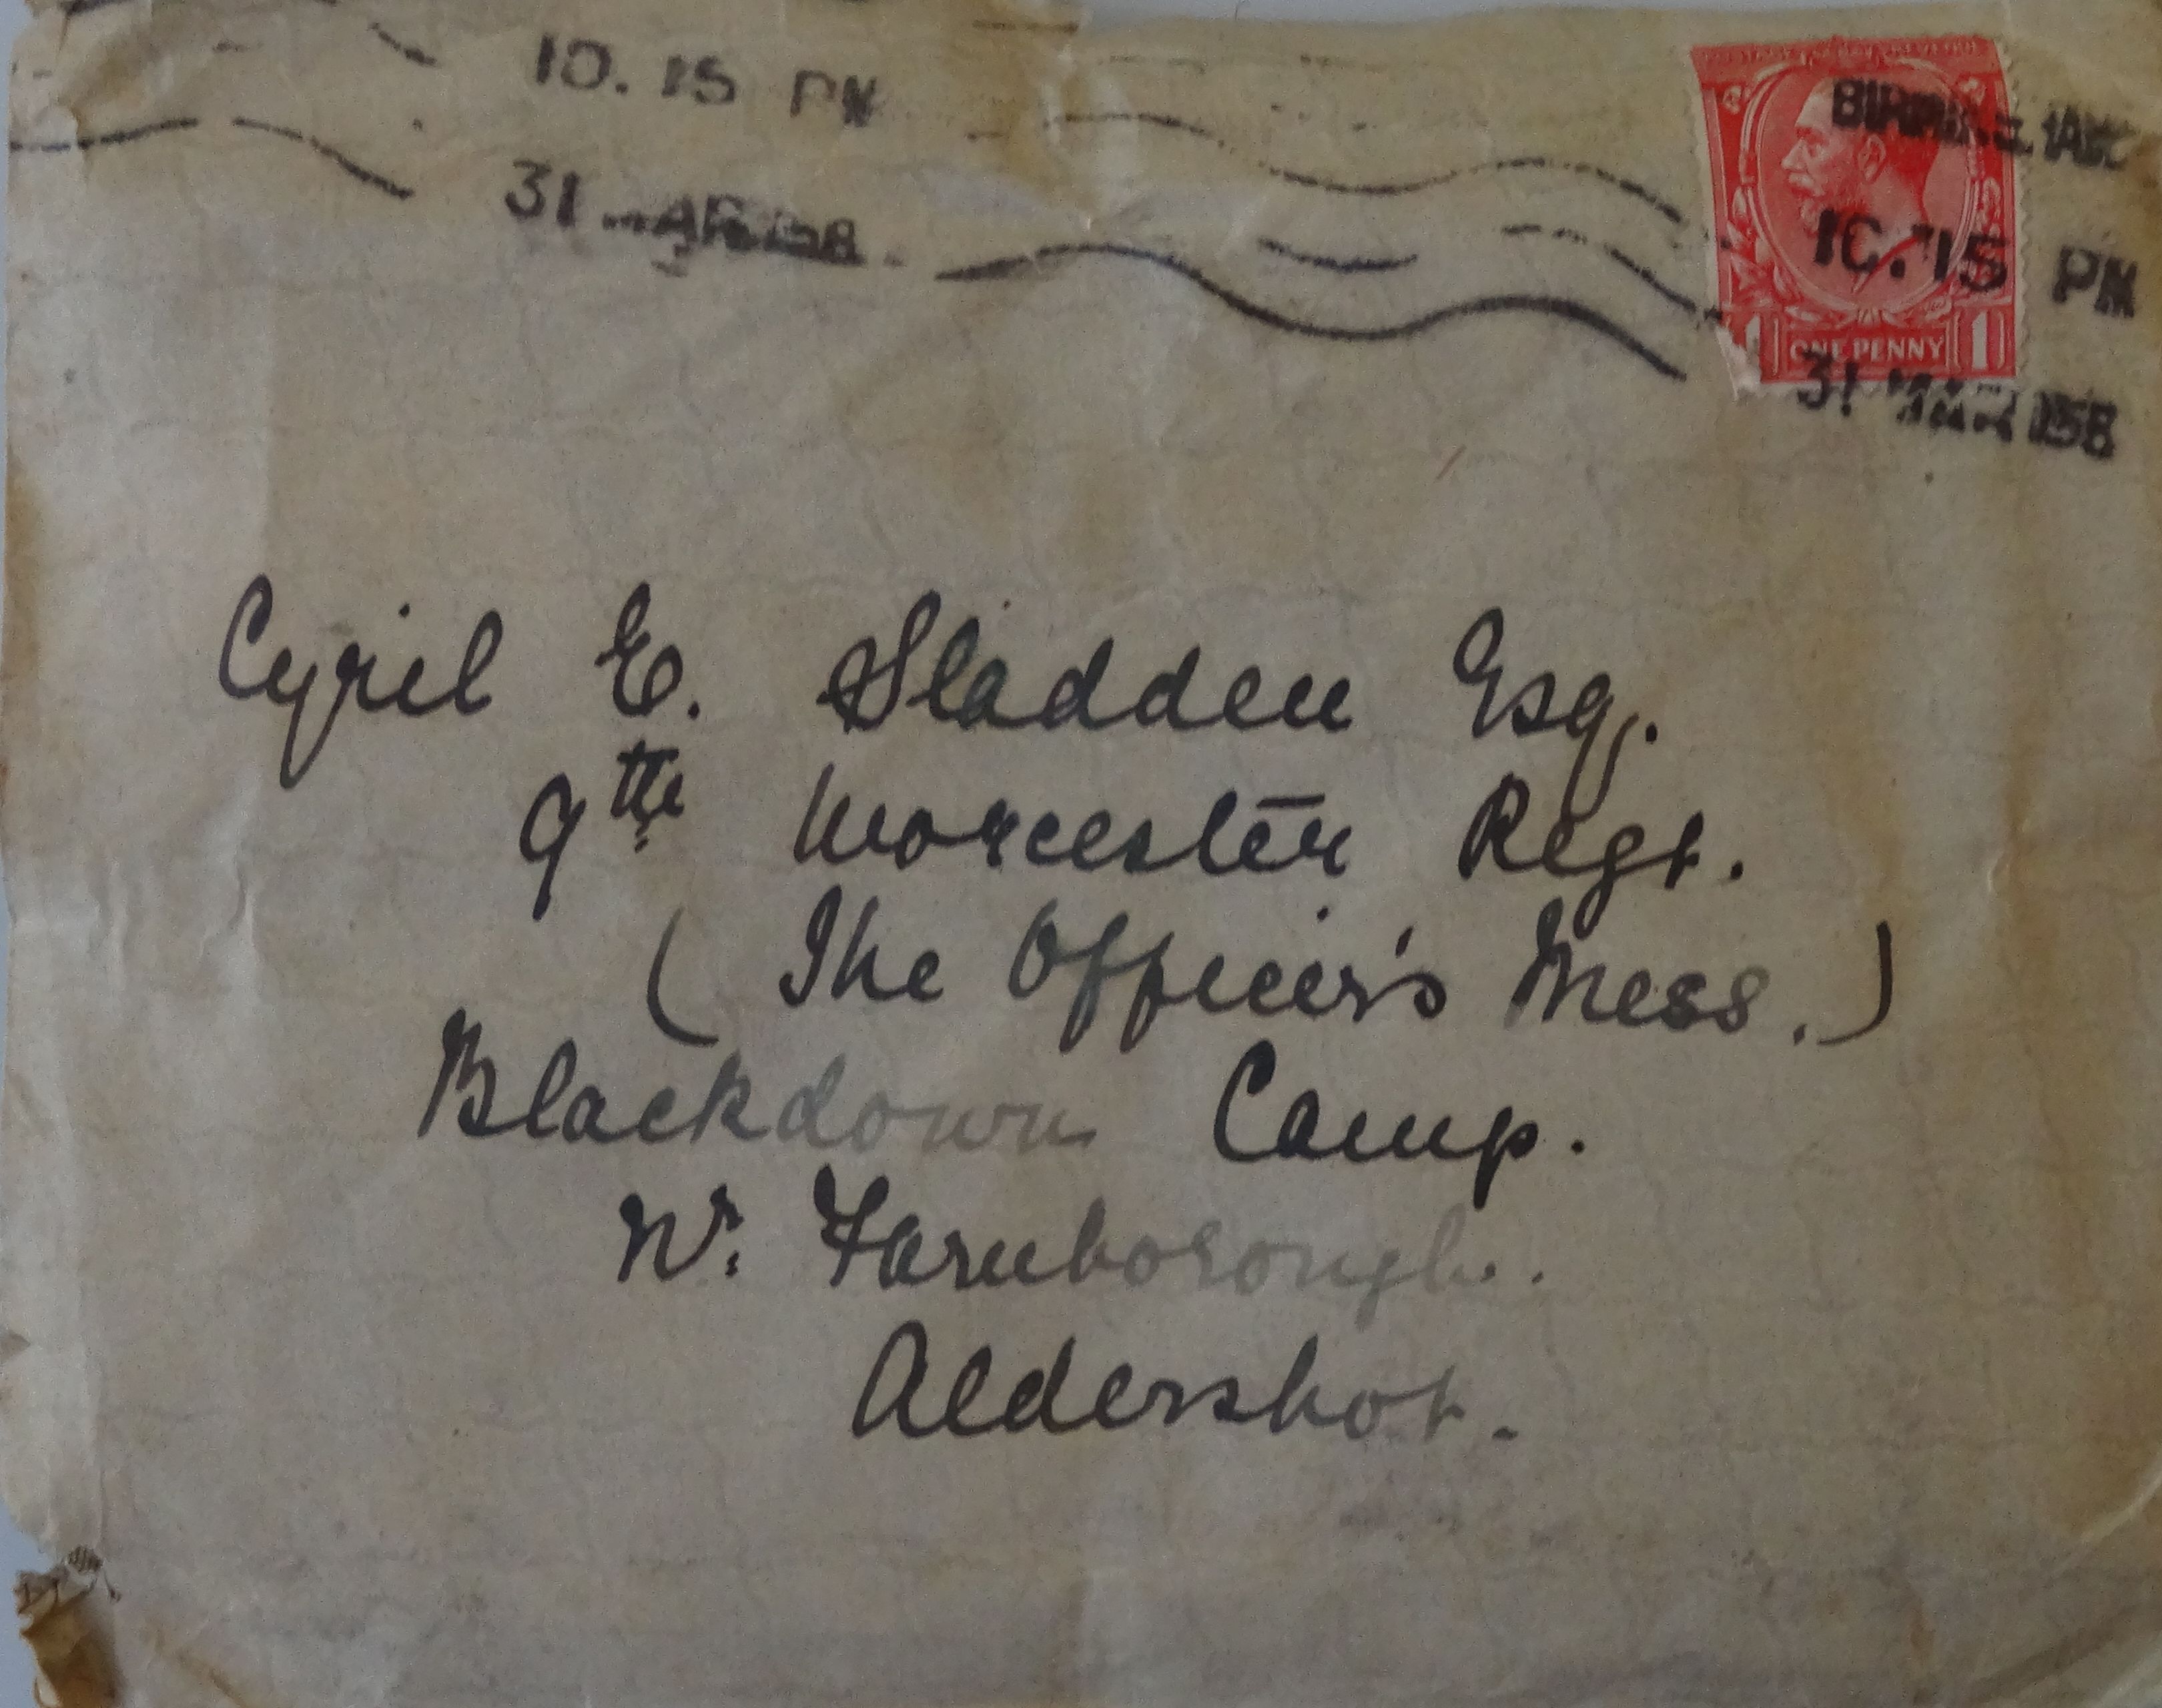 10.15 PM
31
10.15 PM
31 MAR 15B
ONE PENNY
1
Cyril E. Sladden Esq.
9th Worcester Regt.
( The Officer's Mess. )
Blackdown Camp.
Nr. Farnborough.
Aldershot.